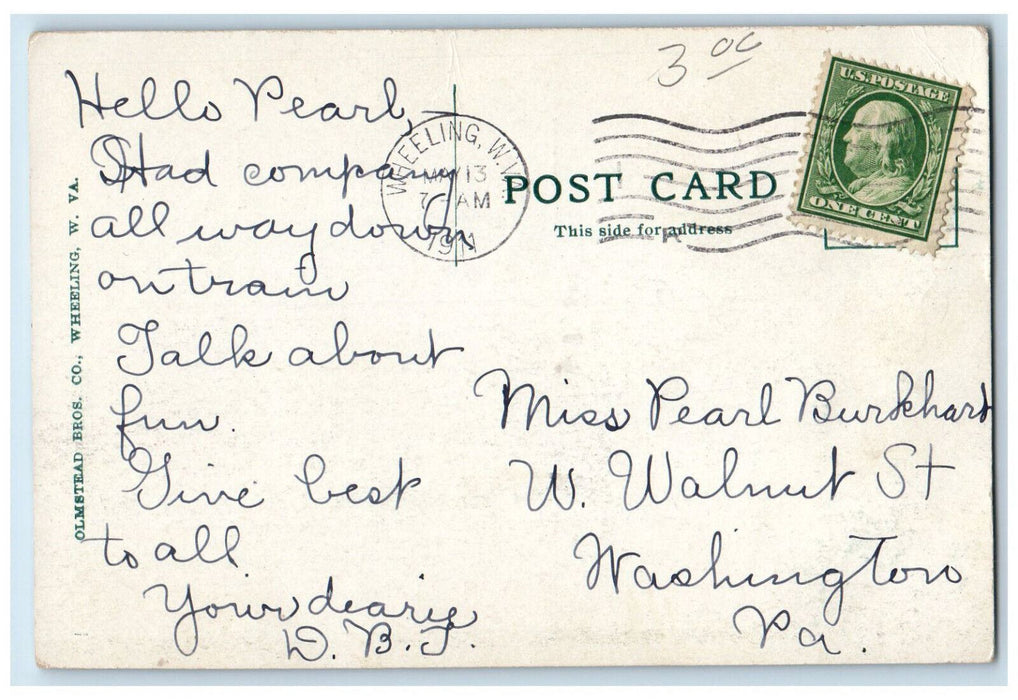 3 00
U.S. POSTAGE
ONE CENT
WHEELING, W.VA.
MAY 13
7- AM
1911
POST CARD
This side for address
OLMSTEAD BROS. CO., WHEELING, W. VA.
Hello Pearl,
Had company
all way down
on train
Talk about
fun.
Give best
to all.
Your deary
D. B. T.
Miss Pearl Burkhart
W. Walnut St
Washington
Pa.